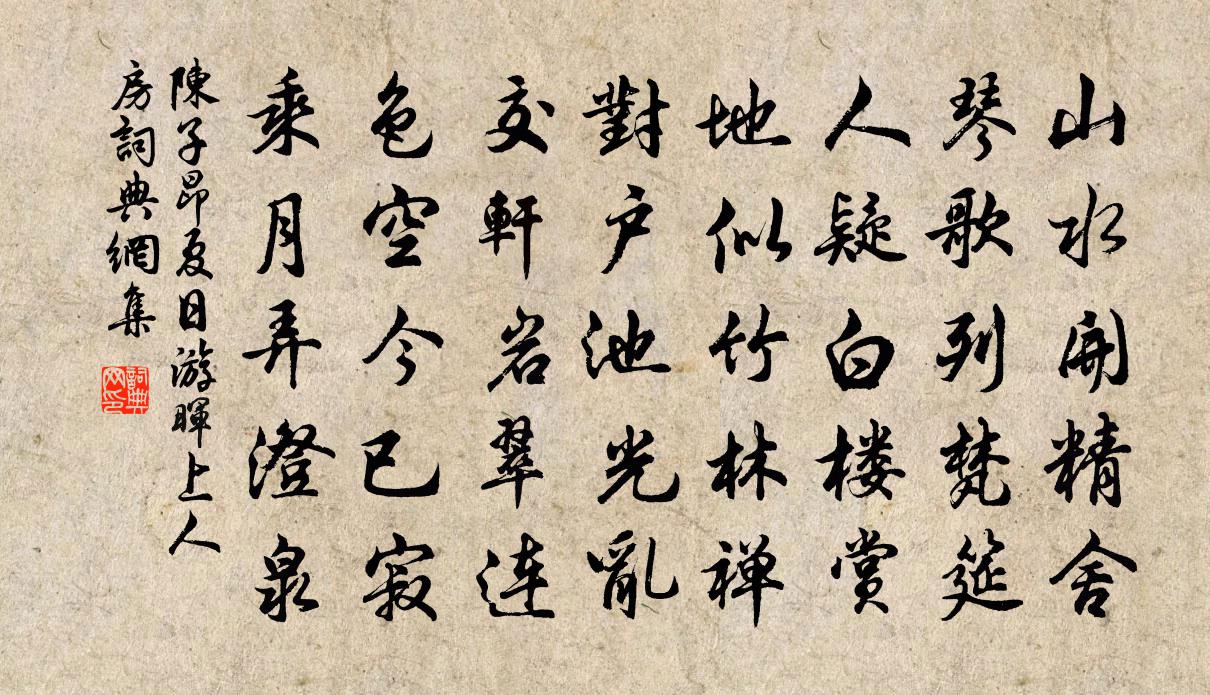 山水開精舍
琴歌列梵筵
人疑白楼赏
地似竹林禅
對户池光亂
交軒岩翠连
色空今已寂
乘月弄澄泉
陳子昂夏日游暉上人
房詞典網集
詞典
网印